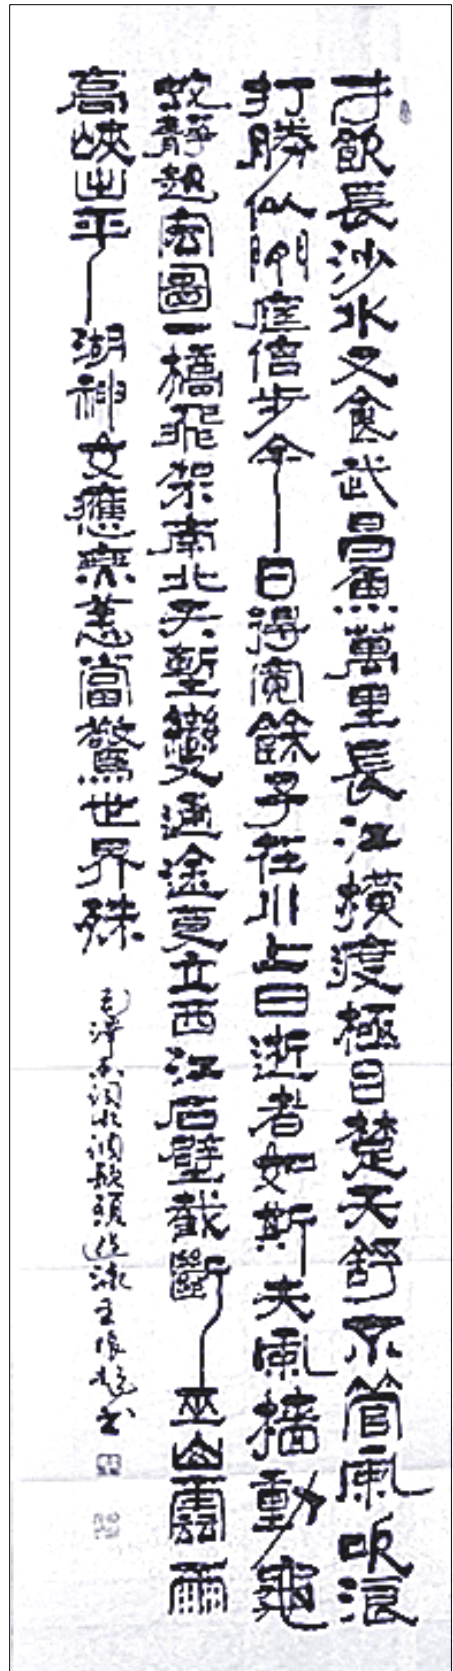 才飲長沙水又食武昌魚萬里長江橫渡極目楚天舒不管風吹浪
打勝似閒庭信步今日得寬餘子在川上曰逝者如斯夫風檣動龜
蛇靜起宏圖一橋飛架南北天塹變通途更立西江石壁截斷巫山雲雨
高峽出平湖神女應無恙當驚世界殊
毛澤東詞水調歌頭游泳 書